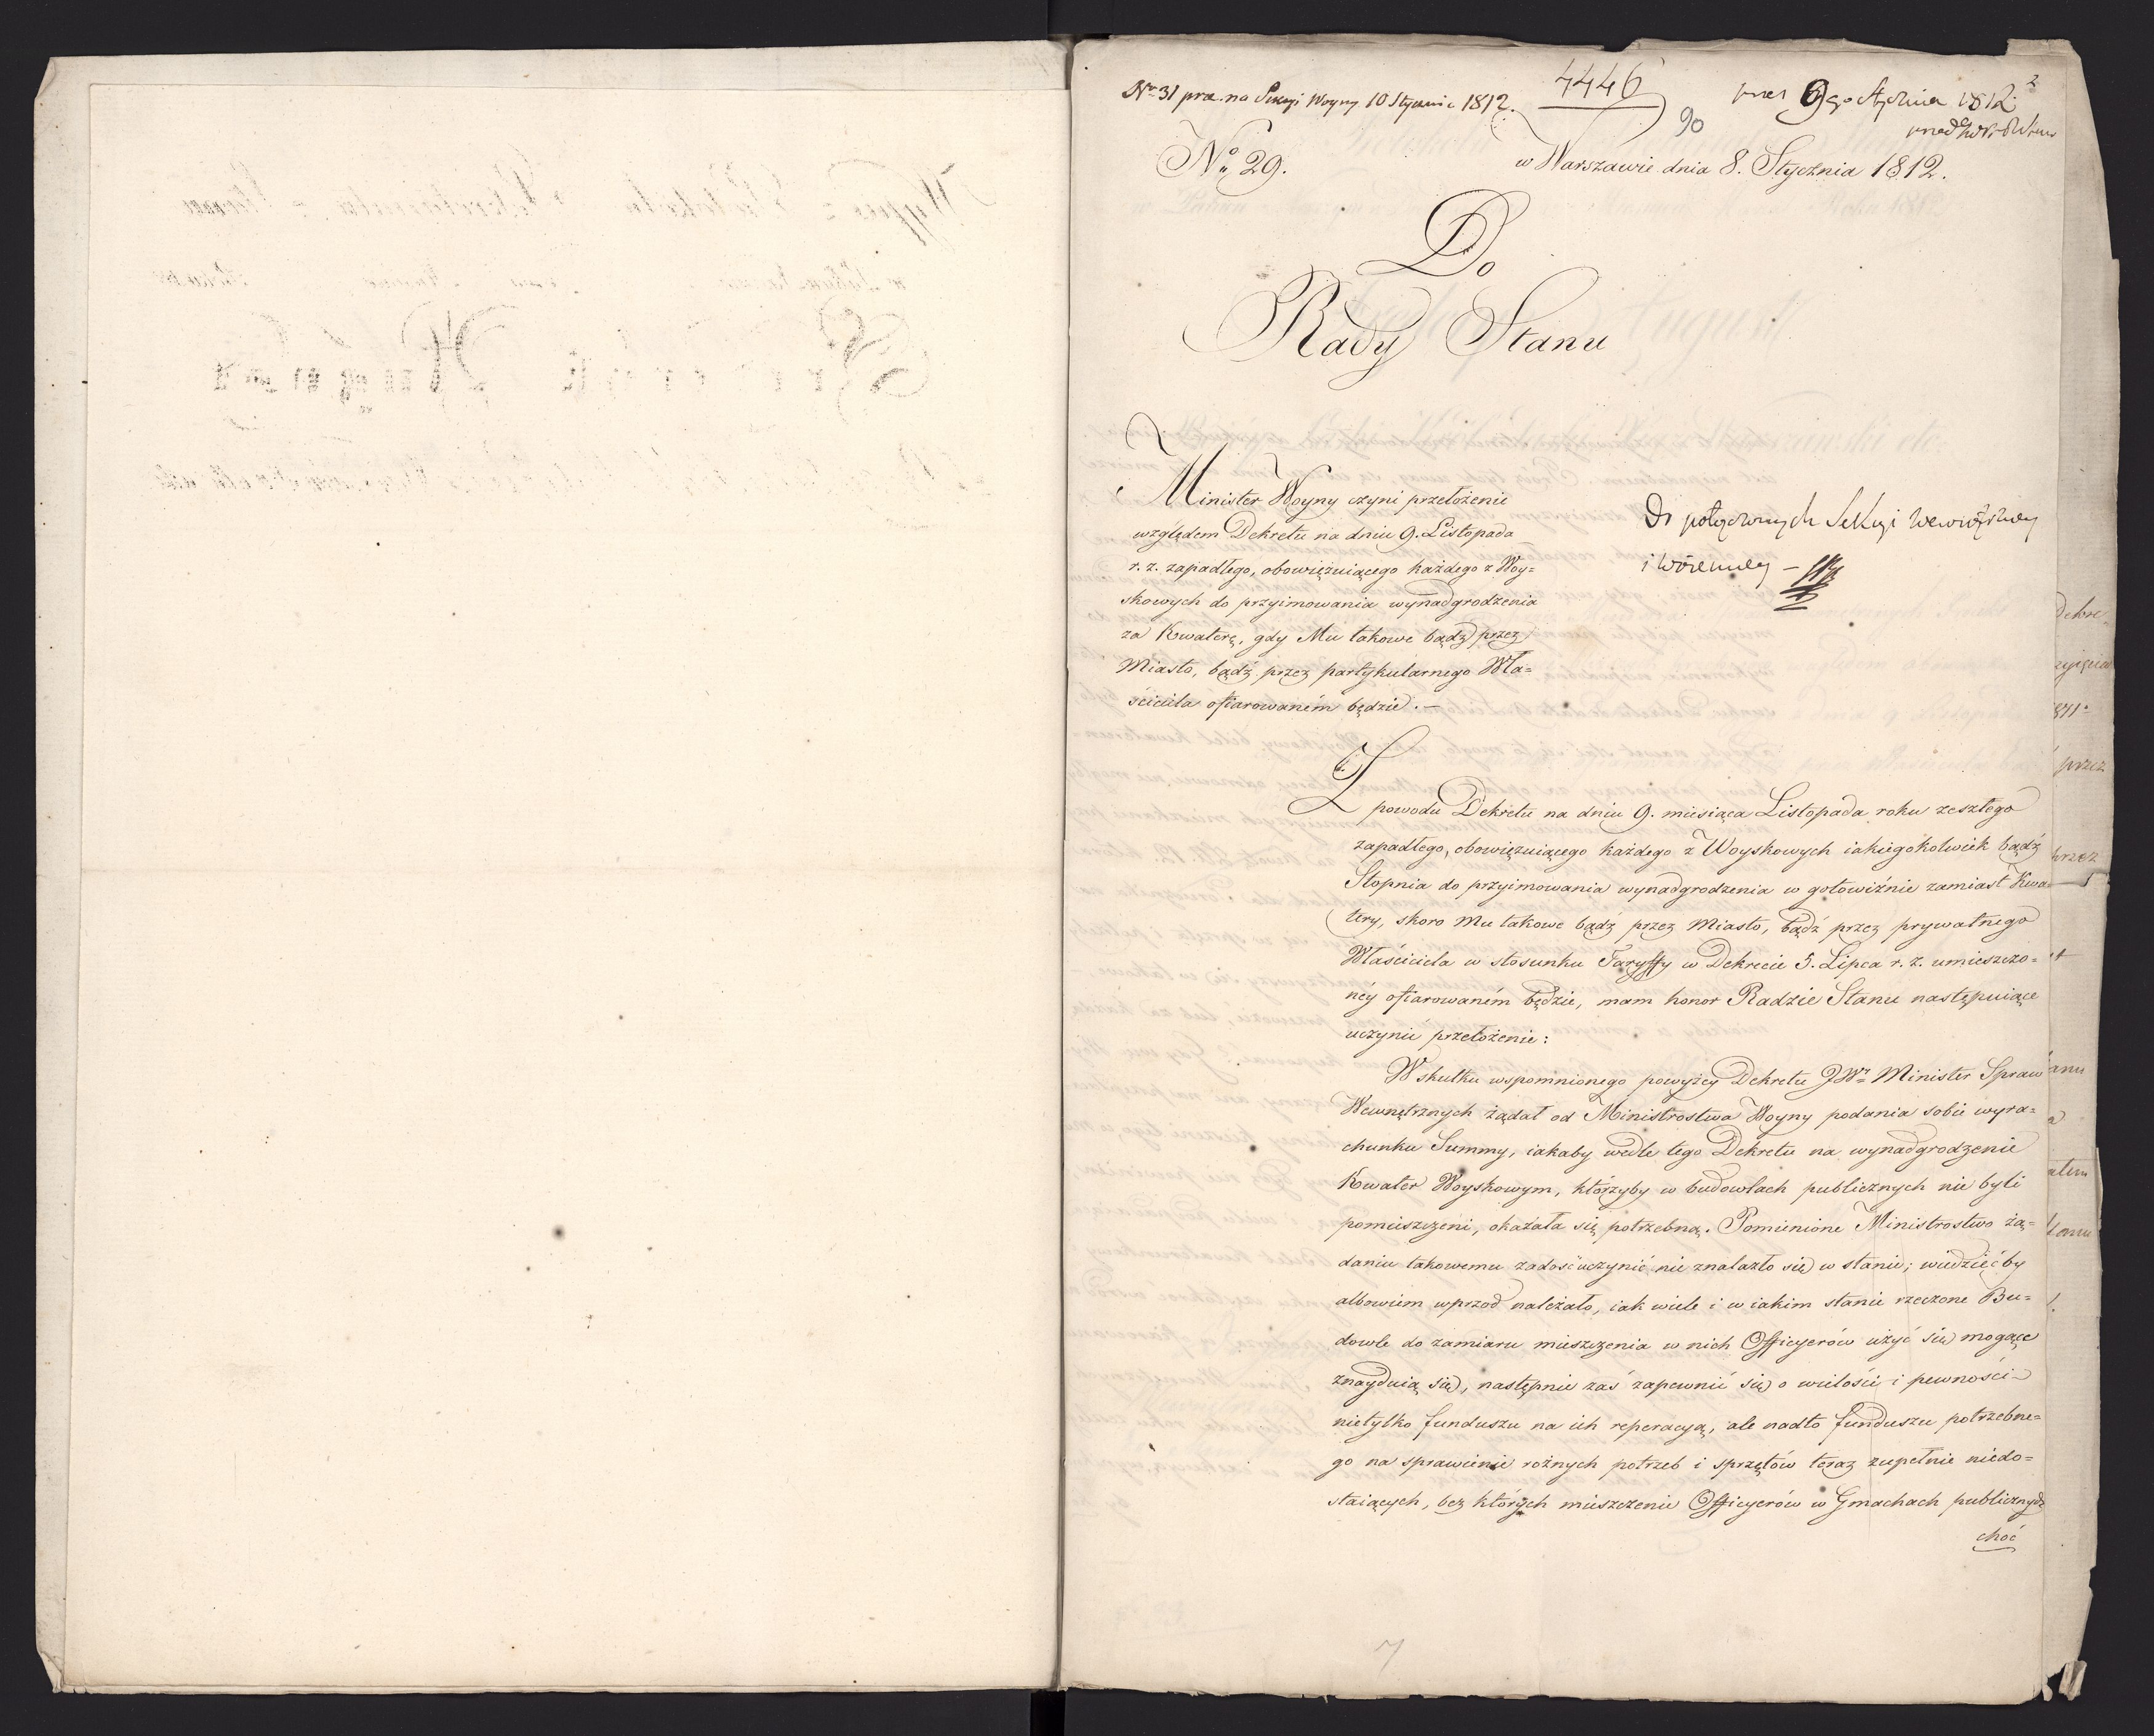 Nro 31 prez. na Sekcyi Woyny 10 Stycznia 1812.
4446
90
prez 9go Stycznia 1812
2
No 29.
w Warszawie dnia 8. Stycznia 1812.
Do
Rady Stanu
Minister Woyny czyni przełożenie
względem Dekretu na dniu 9. Listopada
r. z. zapadłego, obowięzuiącego każdego z Woy=
skowych do przyimowania wynadgrodzenia
za Kwaterę, gdy Mu takowe bądź przez
Miasto, bądź przez partykularnego Wła=
ściciela ofiarowaném będzie. —
Do połączonych Sekcyi Wewnętrzney
i Woienney —
Z powodu Dekretu na dniu 9. miesiąca Listopada roku zeszłego
zapadłego, obowięzuiącego każdego z Woyskowych iakiegokolwiek bądź
Stopnia do przyimowania wynadgrodzenia w gotowiźnie zamiast Kwa=
tery, skoro Mu takowe bądź przez Miasto, bądź przez prywatnego
Właściciela w stosunku Taryffy w Dekrecie 5. Lipca r. z. umieszczo=
néy ofiarowaném będzie, mam honor Radzie Stanu następuiące
uczynić przełożenie:
W skutku wspomnionego powyżey Dekretu JWy Minister Spraw
Wewnętrznych żądał od Ministrostwa Woyny podania sobie wyra=
chunku Summy, iakaby wedle tego Dekretu na wynadgrodzenie
Kwater Woyskowym, którzyby w budowlach publicznych nie byli
pomieszczeni, okazała się potrzebną. Pomienione Ministrostwo żą=
daniu takowemu zadosićuczynić nie znalazło się w stanie; wiedzieć by
albowiem wprzod należało, iak wiele i w iakim stanie rzeczone Bu=
dowle do zamiaru mieszczenia w nich Officyerów użyć się mogące
znayduią się, następnie zaś zapewnić się o wielości i pewności
nietylko funduszu na ich reperacyą, ale nadto funduszu potrzebne=
go na sprawienie rożnych potrzeb i sprzętów teraz zupełnie niedo=
staiących, bez których mieszczenie Officyerów w Gmachach publicznych
choć
7